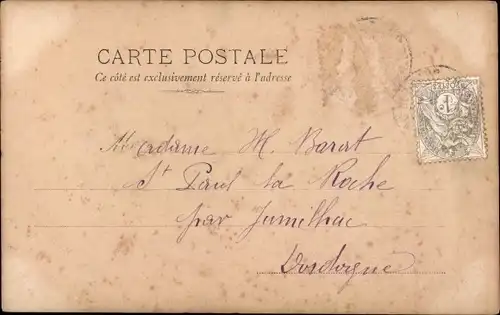 CARTE POSTALE
Ce côté est exclusivement réservé à l'adresse
Madame H. Barat
St Paul la Roche
par Jumilhac
Dordogne
1